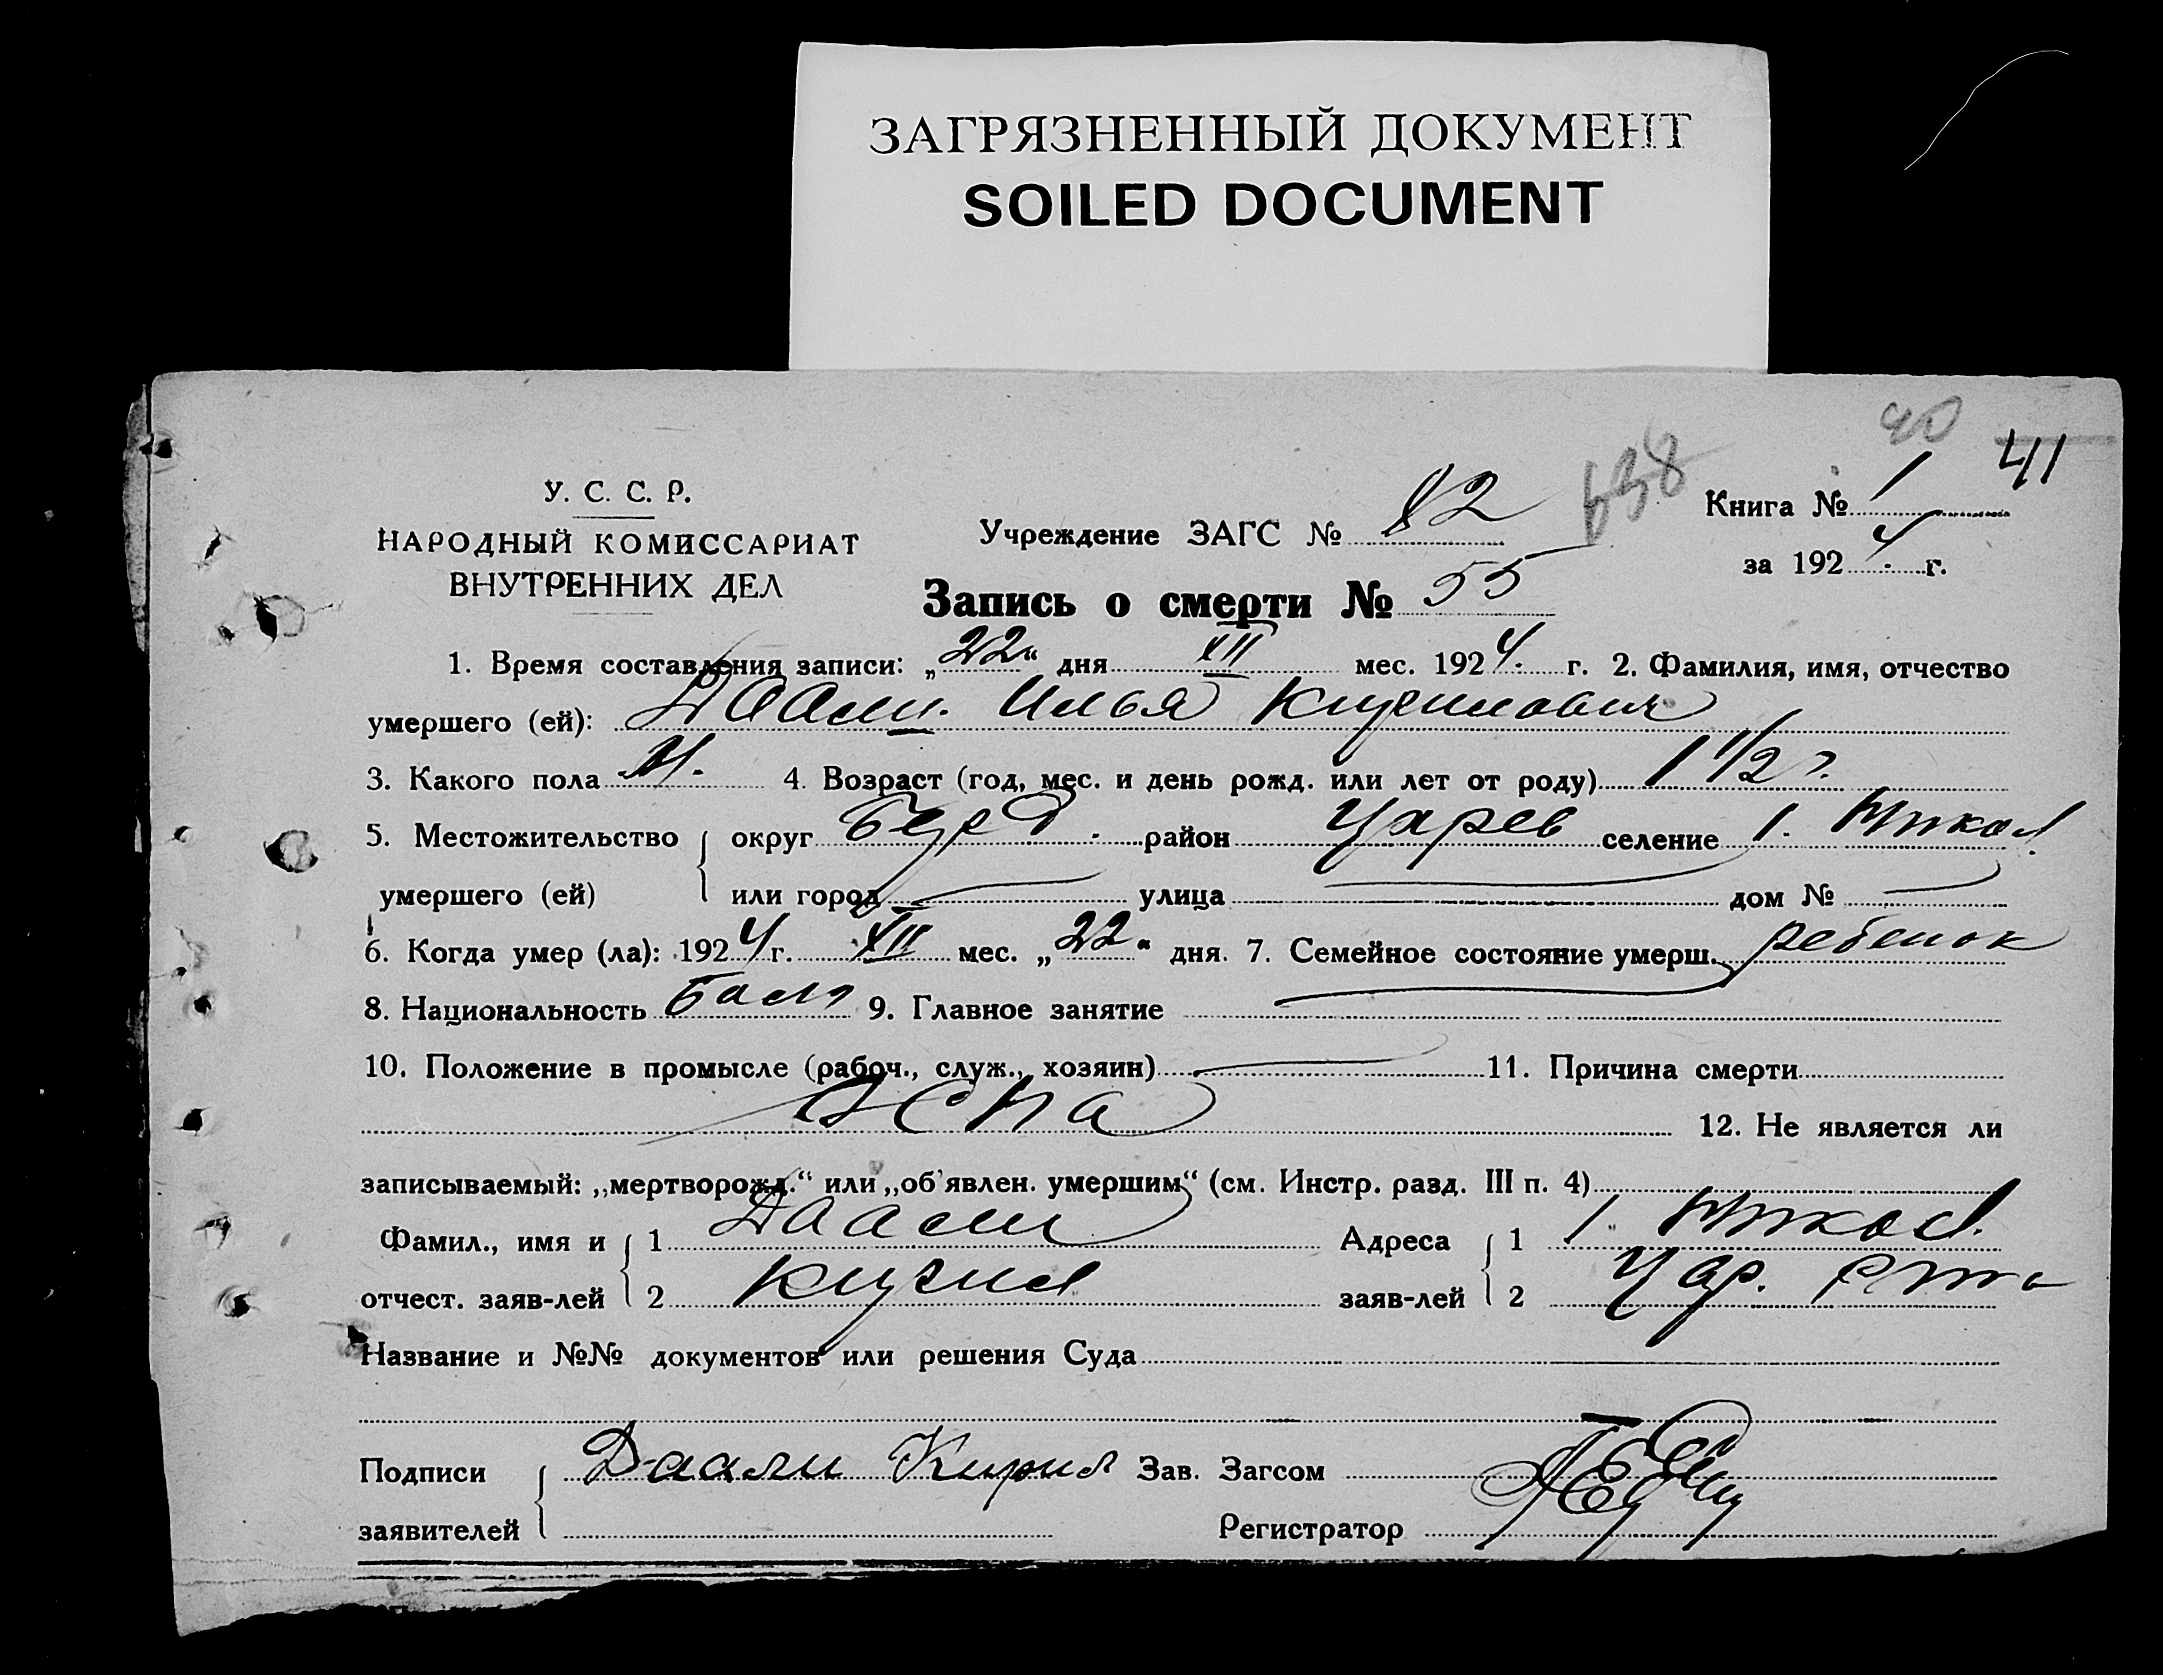 ЗАГРЯЗНЕННЫЙ ДОКУМЕНТ
SOILED DOCUMENT
40
41
638
У. С. С. Р.
НАРОДНЫЙ КОМИССАРИАТ
ВНУТРЕННИХ ДЕЛ
Учреждение ЗАГС № 82
Книга № 1
за 1924 г.
Запись о смерти № 55
1. Время составления записи: „22“ дня XII мес. 1924. г. 2. Фамилия, имя, отчество
умершего (ей): Даали. Илья Кирилович
3. Какого пола М. 4. Возраст (год, мес. и день рожд. или лет от роду) 1 1/2 г.
5. Местожительство округ район Царев селение 1. Никол.
умершего (ей) или город — улица — дом № —
6. Когда умер (ла): 1924 г. XII мес. „22“ дня. 7. Семейное состояние умерш. ребенок
8. Национальность 9. Главное занятие —
10. Положение в промысле (рабоч., служ., хозяин) — 11. Причина смерти
Оспа 12. Не является ли
записываемый: „мертворожд.“ или „об'явлен. умершим“ (см. Инстр. разд. III п. 4)
Фамил., имя и 1 Даали Адреса 1 1. Никол.
отчест. заяв-лей 2 Кирил заяв-лей 2 Цар.
Название и №№ документов или решения Суда
Подписи Даали Кирил Зав. Загсом
заявителей Регистратор